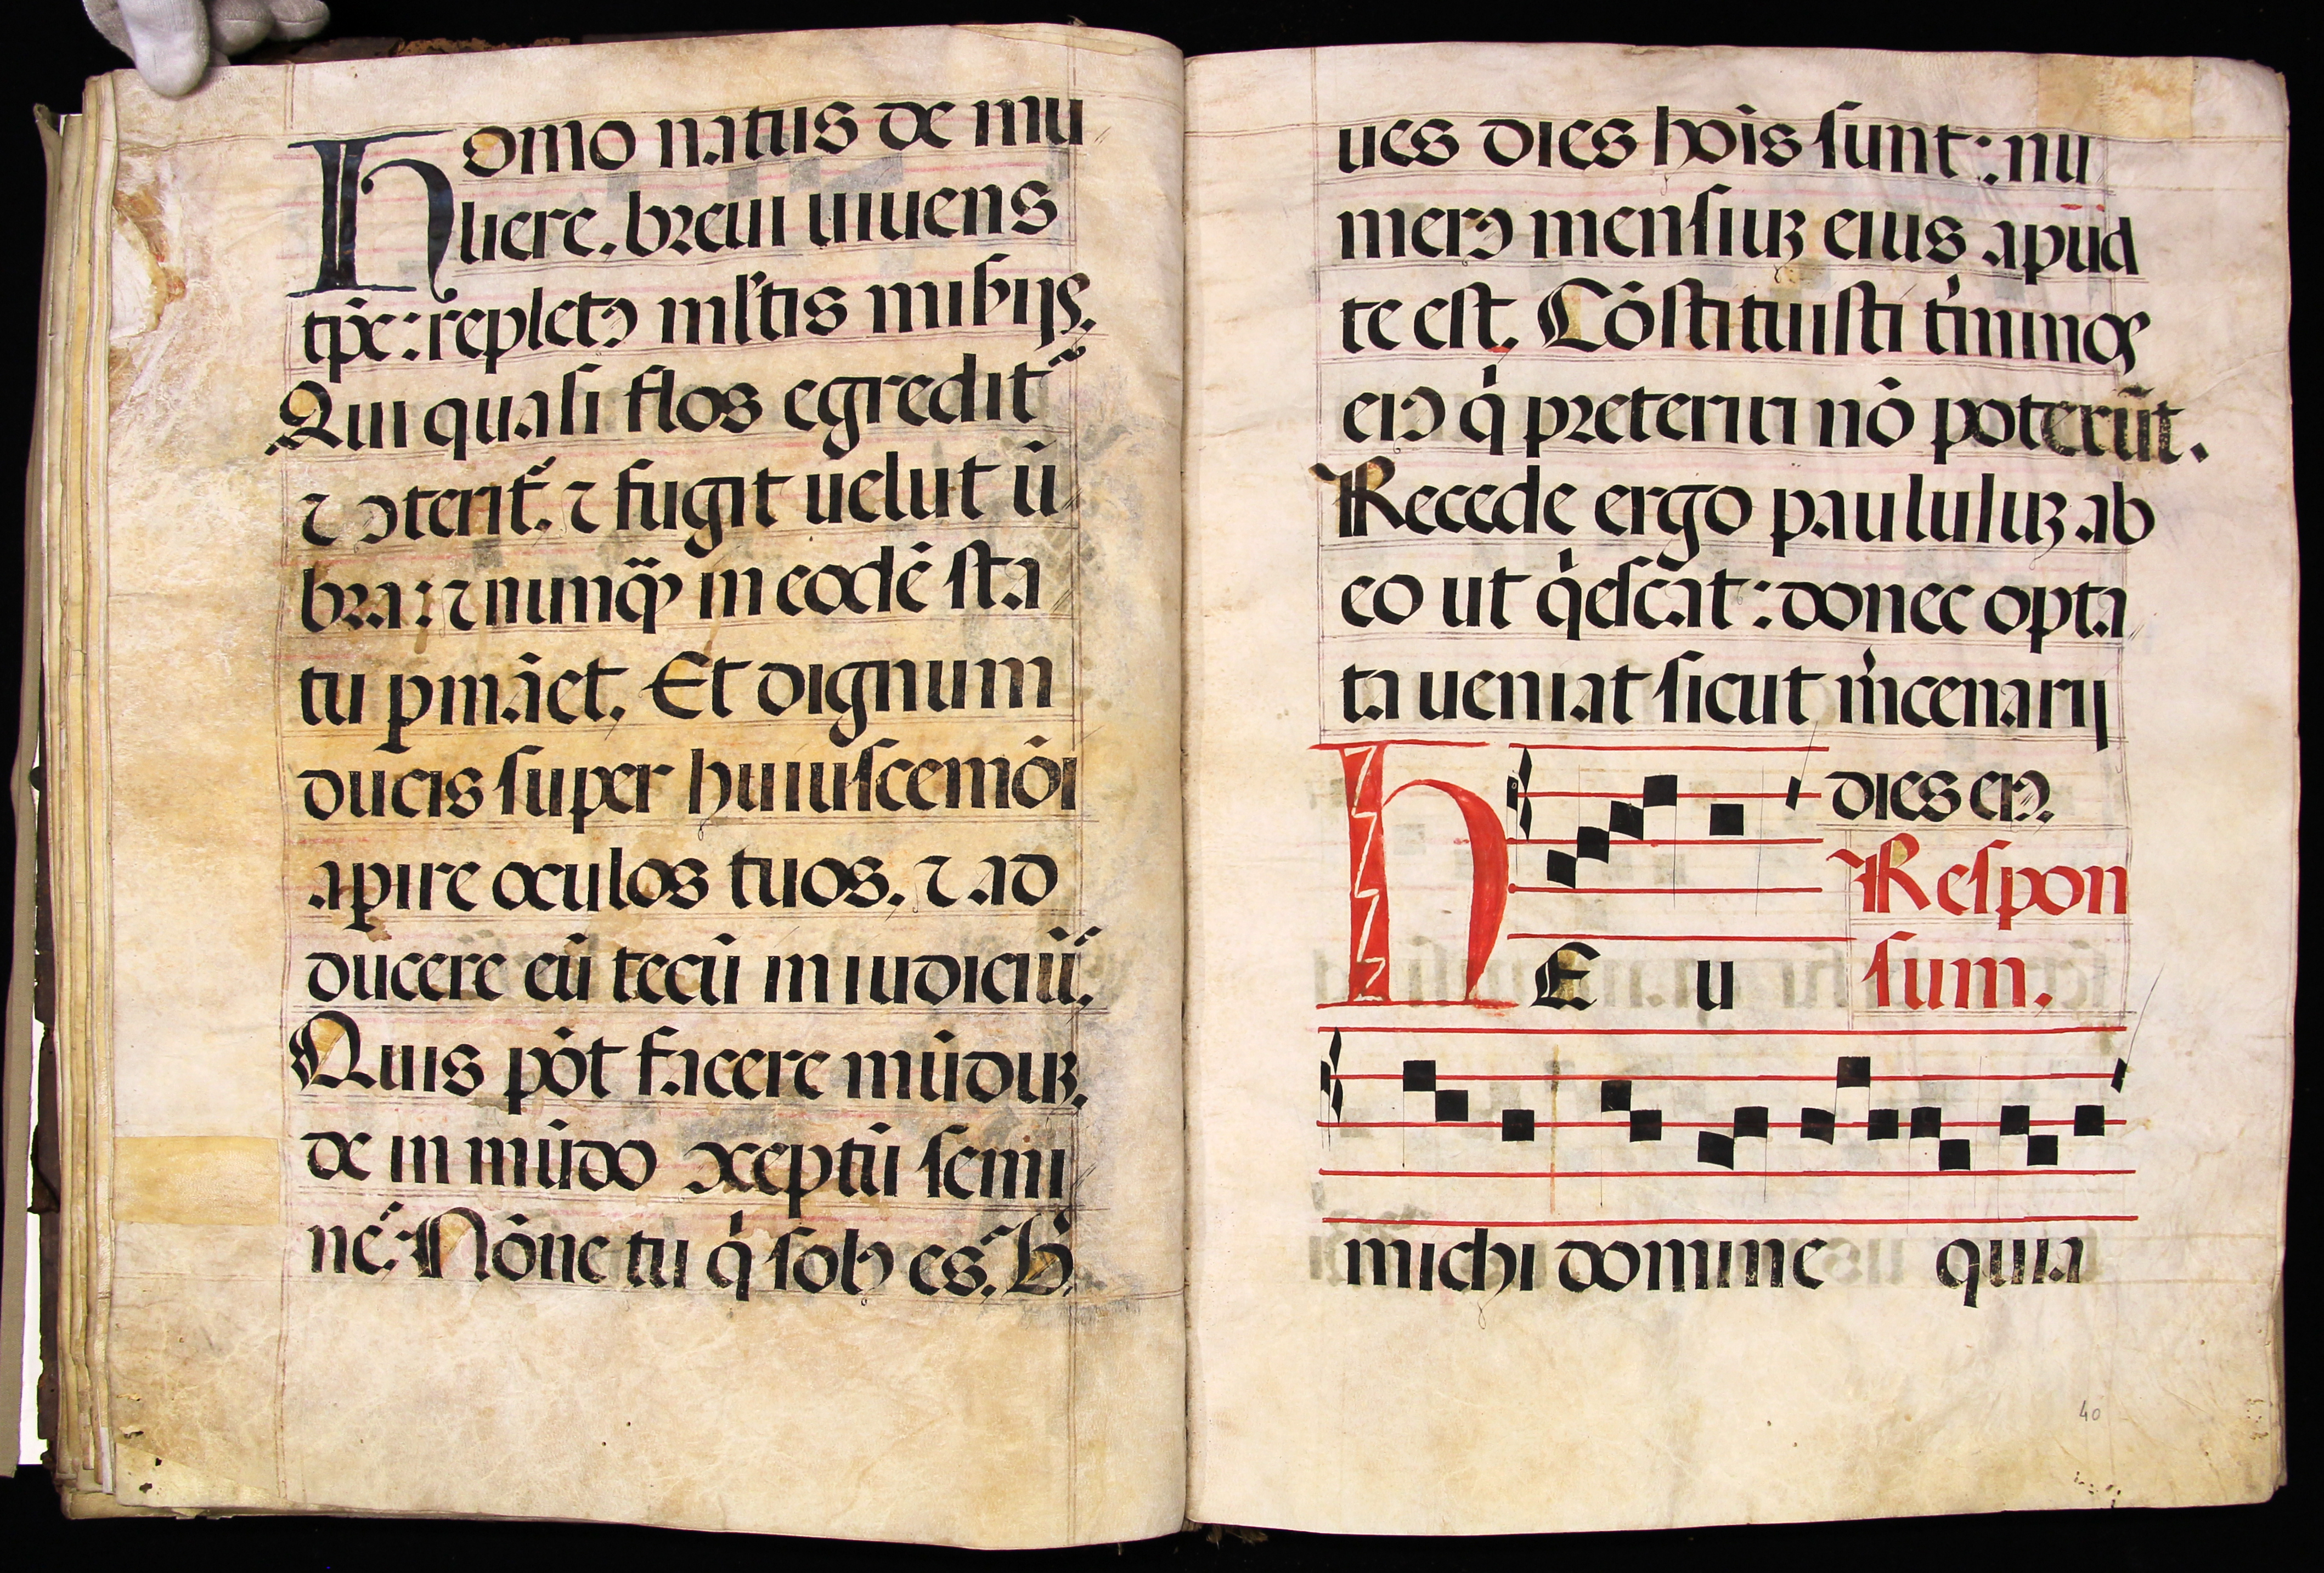 Homo natus de mu
liere. breui uiuens
tp̄e: repletꝰ ml'tis mis̄ijs.
Qui quasi flos egredit᷑
⁊ ꝯterit᷑. ⁊ fugit uelut ū
bra: ⁊ nunqꝫ in eodē sta
tu ꝑmāet. Et dignum
ducis super huiuscemōi
aꝑire oculos tuos. ⁊ ad
ducere eū tecū in iudiciū.
Quis pōt facere mūduꝫ.
de in mūdo ꝯceptū semi
nē: Nōne tu q̇ solꝰ es. B̄
ues dies hōis sunt: nu
merꝰ mensiuꝫ eius apud
te est. Cōstituisti t̄minos
eiꝰ q̇ preteriri nō poterūt.
Recede ergo paululuꝫ ab
eo ut q̇escāt: donec opta
ta ueniat sicut m̄cenarij
dies eiꝰ.
Respon
HEu sum.
michi domine quia
40